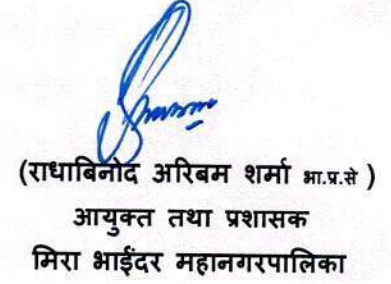 (राधाबिनोद अरिबम शर्मा भा.प्र.से )
आयुक्त तथा प्रशासक
मिरा भाईंदर महानगरपालिका